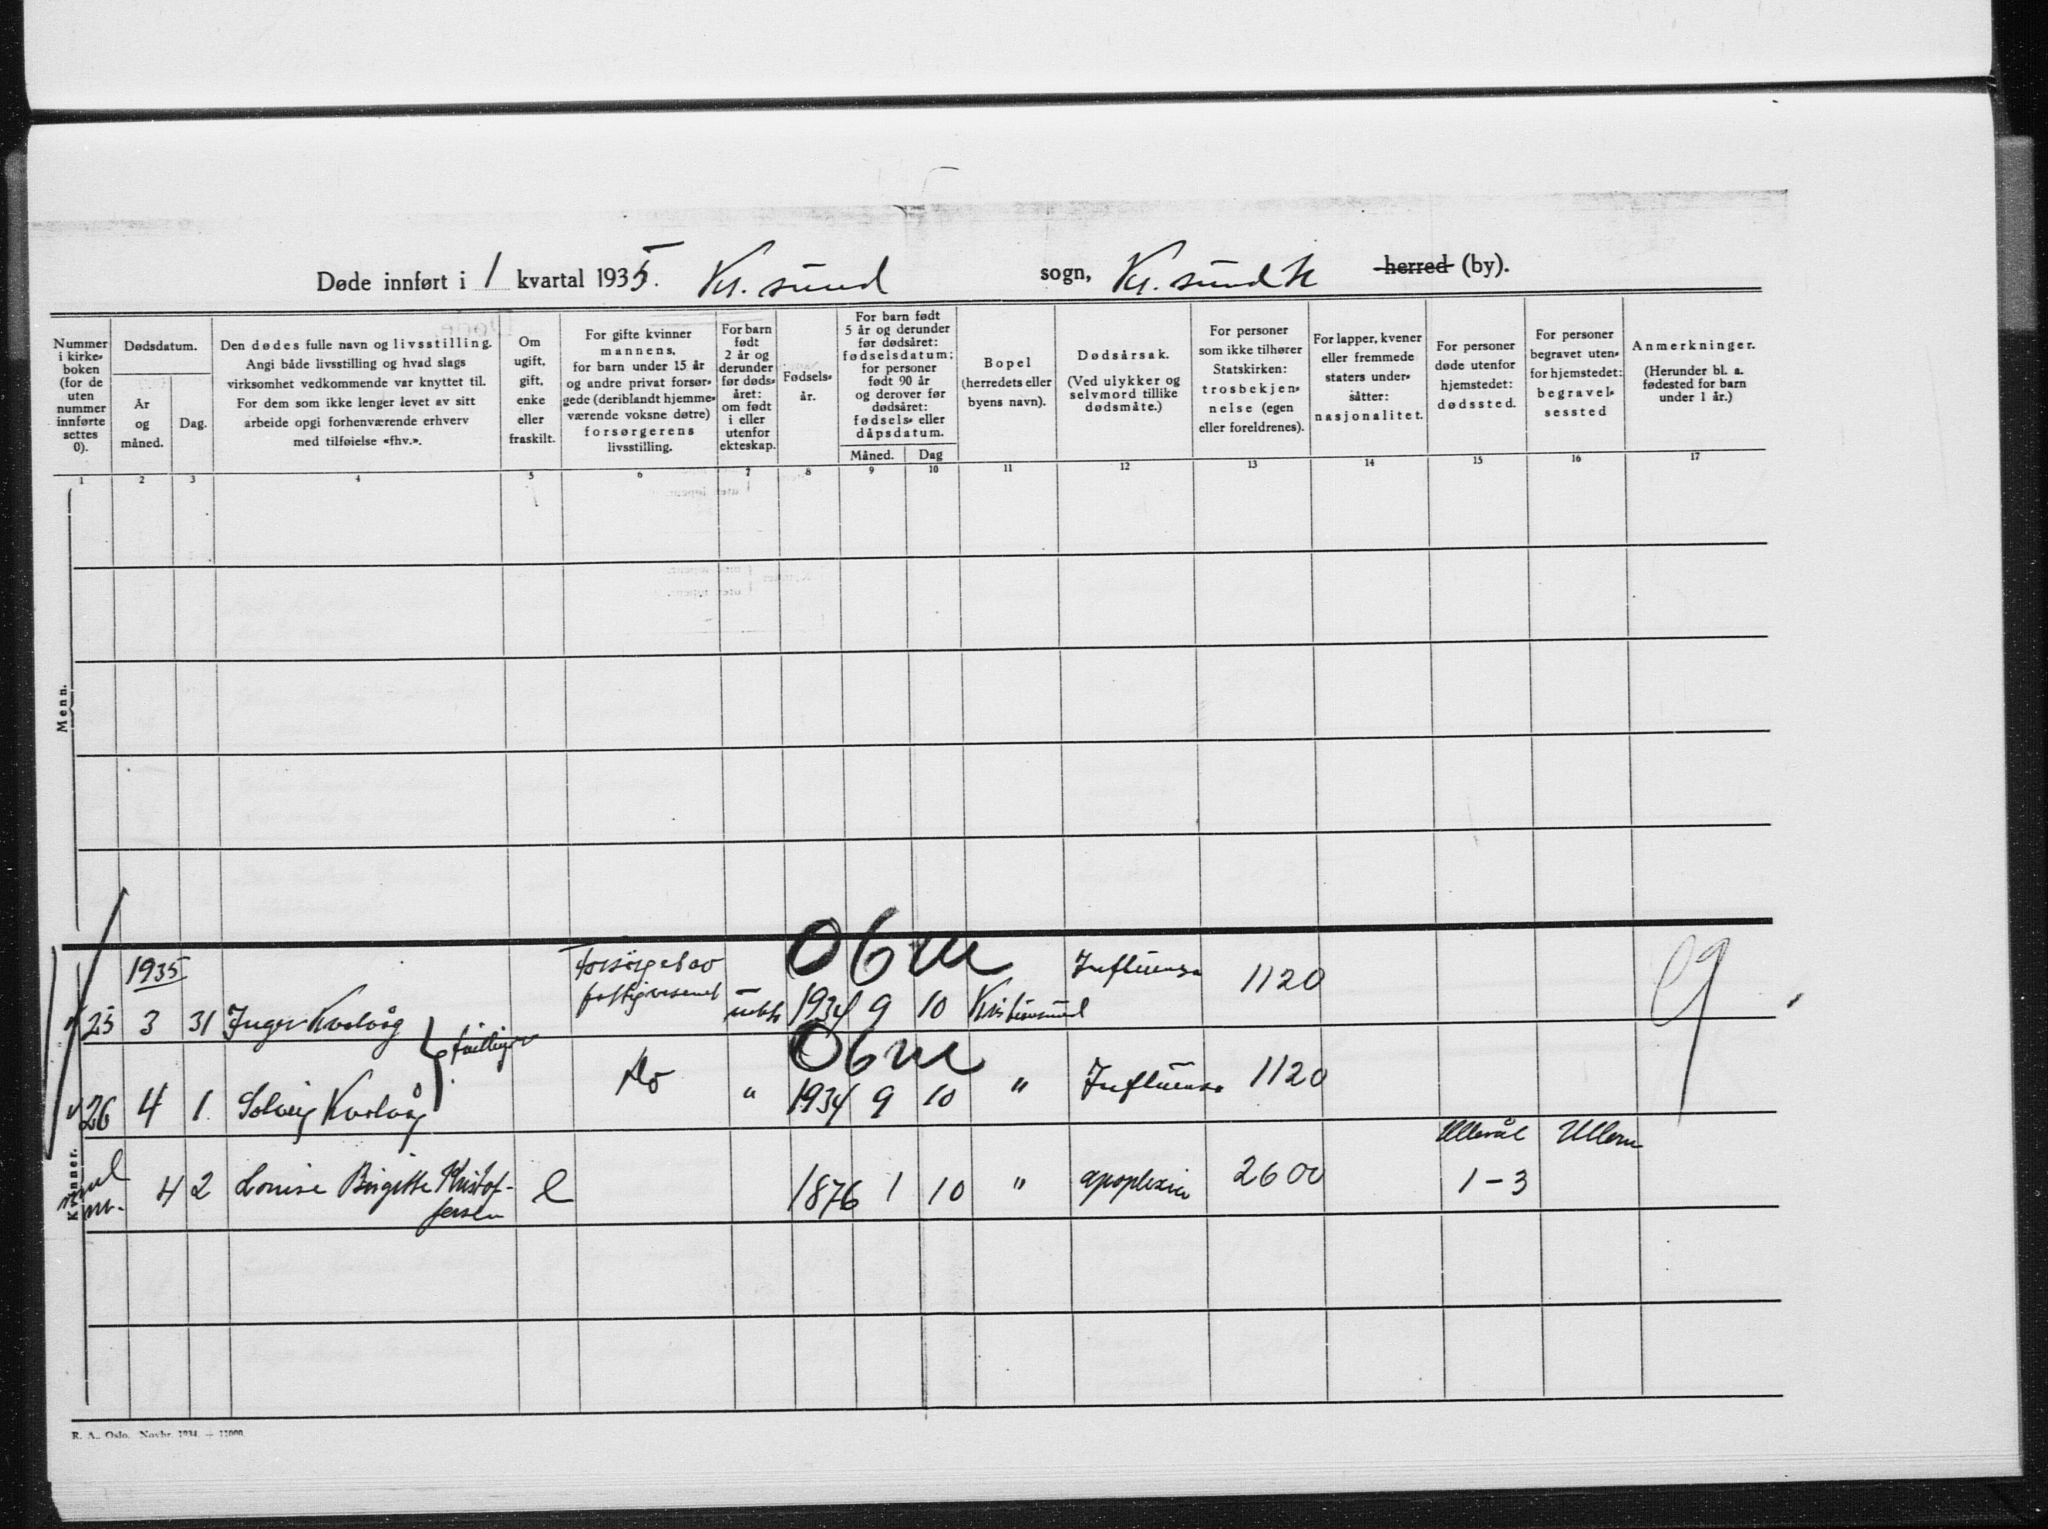 Døde innført i 1 kvartal 1935. Kr. sund sogn, Kr. sund N herred (by).
Nummer i kirke- boken (for de uten nummer innførte settes 0).
Dødsdatum.
År og måned.
Dag.
Den dødes fulle navn og livsstilling.
Angi både livsstilling og hvad slags
virksomhet vedkommende var knyttet til.
For dem som ikke lenger levet av sitt
arbeide opgi forhenværende erhverv
med tilføielse «fhv.».
Om ugift, gift, enke eller fraskilt.
For gifte kvinner
mannens,
for barn under 15 år
og andre privat forsør-
gede (deriblandt hjemme-
værende voksne døtre)
forsørgerens
livsstilling.
For barn født 2 år og derunder før døds- året: om født i eller utenfor ekteskap.
Fødsels- år.
For barn født
5 år og derunder
før dødsåret:
fødselsdatum;
for personer
født 90 år
og derover før
dødsåret:
fødsels- eller
dåpsdatum.
Måned. Dag
Bopel
(herredets eller
byens navn).
Dødsårsak.
(Ved ulykker og
selvmord tillike
dødsmåte.)
For personer
som ikke tilhører
Statskirken:
trosbekjen-
nelse (egen
eller foreldrenes).
For lapper, kvener
eller fremmede
staters under-
såtter:
nasjonalitet.
For personer
døde utenfor
hjemstedet:
dødssted.
For personer
begravet uten-
for hjemstedet:
begravel-
sessted
Anmerkninger.
(Herunder bl. a.
fødested for barn
under 1 år.)
1 2 3 4 5 6 7 8 9 10 11 12 13 14 15 16 17
Menn.
Kvinner.
1935 forsørget av fattigvesenet 06 m Influensa 1120
25 3 31 Inger Kvalvåg uekte 1934 9 10 Kristiansund
} tvillinger
06 m
26 4 1. Solveig Kvalvåg Do " 1934 9 10 " Influensa 1120
Ullevål Ullern
4 2 Louise Birgitte Kristof-
fersen e 1876 1 10 " apoplexia 2600 1-3
09
R. A., Oslo. Novbr. 1934. ÷ 17000.